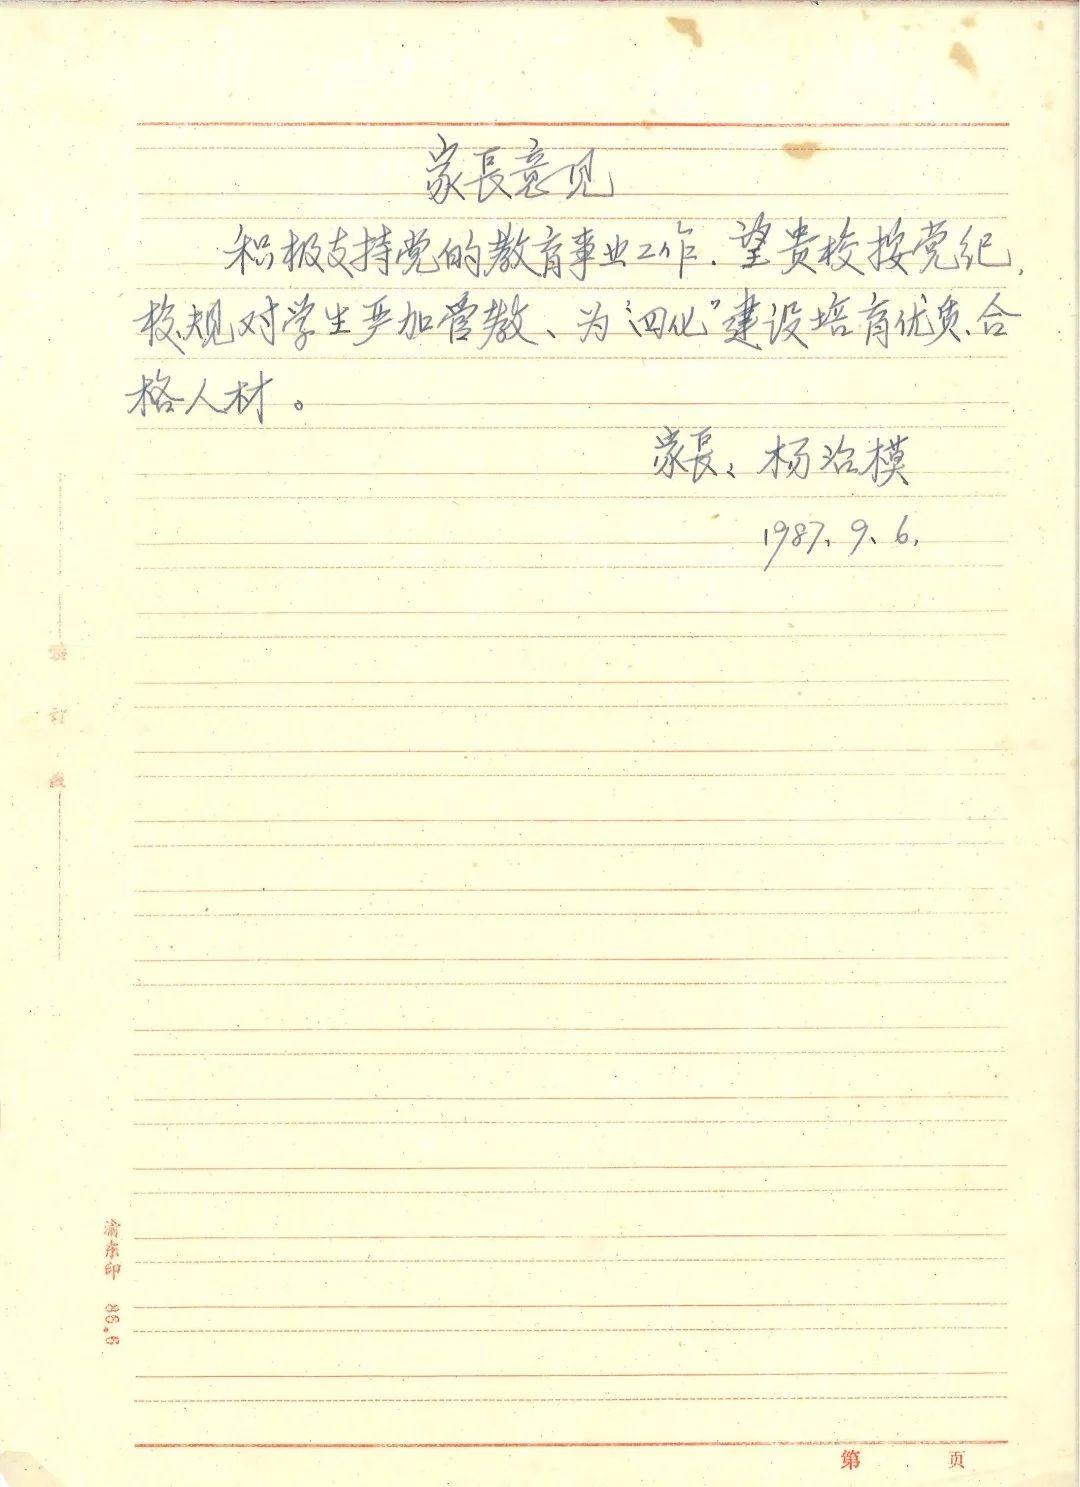 家長意见
积极支持党的教育事业工作.望贵校按党纪、
校规对学生严加管教、为“四化”建设培育优质、合
格人材。
家長：杨治模
1987.9.6.
装订线
渝东印 86.6
第 页